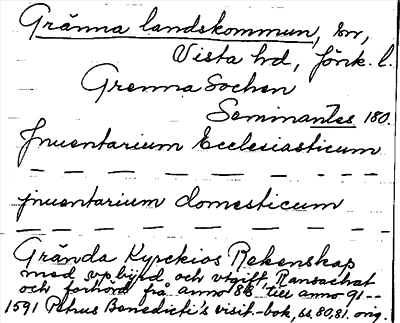 Gränna landskommun, sn,
Vista hd, Jönk. l.
Grenna Sochen
Seminantes 180.
Jnuentarium Ecclesiasticum
jnuentarium domesticum
Grända Kyrckios Rekenskap
med vpbyrd och vtgift, Ransachat
och förhörd frå anno 86 till anno 91 --
1591 Petrus Benedicti's visit.-bok, ss 80,81. orig.